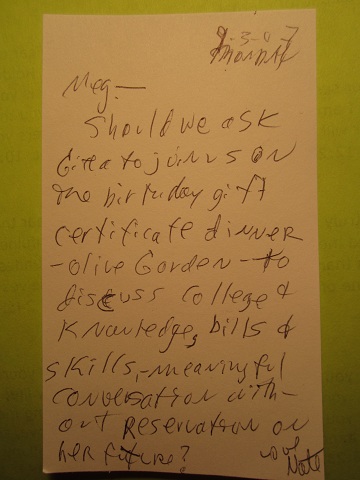 9-3-07
MONDAY
Meg—
Should we ask
Gitta to join us on
the birthday gift
certificate dinner
-Olive Garden-to
discuss college &
knowledge, bills &
skills,-meaningful
conversation with-
out reservation on
her future?
love
Nate